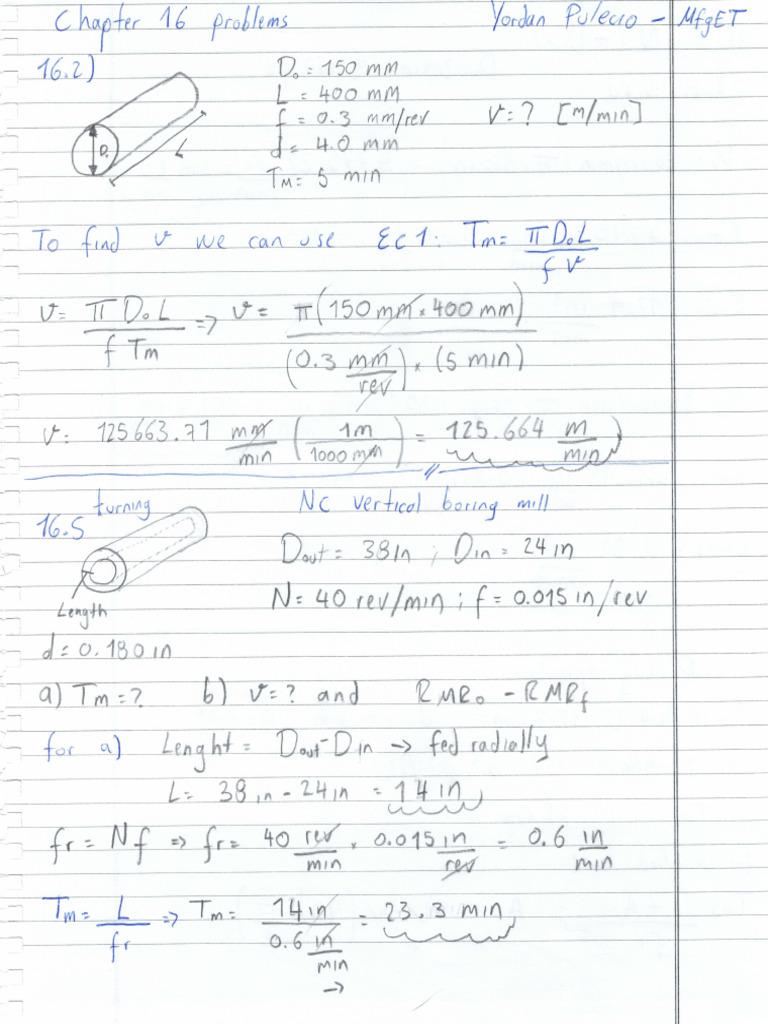 Chapter 16 problems Yordan Pulecio - MfgET
16.2) D₀ = 150 mm
L = 400 mm
f = 0.3 mm/rev v = ? [m/min]
d = 4.0 mm
Tm = 5 min
D₀
L
To find v we can use Ec1: Tm = π D₀ L / f v
v = π D₀ L / f Tm => v = π (150 mm × 400 mm) / (0.3 mm/rev) × (5 min)
v: 125663.71 mm/min (1m / 1000 mm) = 125.664 m/min
16.5 turning NC vertical boring mill
Dout = 38in ; Din = 24 in
N = 40 rev/min ; f = 0.015 in/rev
Length
d = 0.180 in
a) Tm = ? b) v = ? and RMR₀ - RMRf
for a) Lenght = Dout - Din → fed radially
L = 38 in - 24 in = 14 in
fr = Nf => fr = 40 rev/min × 0.015 in/rev = 0.6 in/min
Tm = L / fr => Tm = 14 in / 0.6 in/min = 23.3 min
→